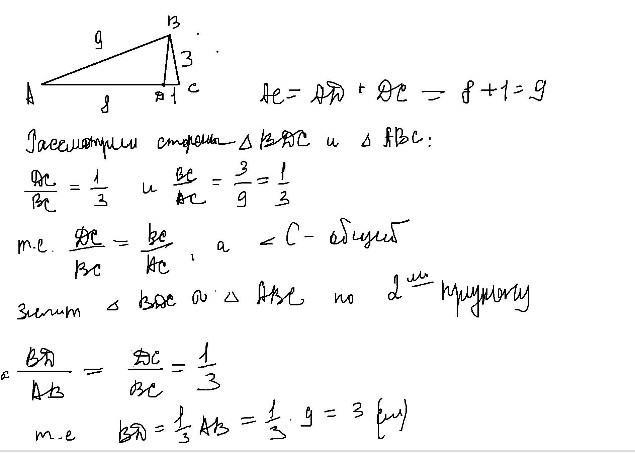 B
9
3
A
8
D 1 C
AC = AD + DC = 8 + 1 = 9
Рассмотрим стороны △ BDC и △ ABC:
DC/BC = 1/3 и BC/AC = 3/9 = 1/3
т.е. DC/BC = BC/AC, а ∠ C - общий
значит △ BDC ∾ △ ABC по 2ᵐʸ признаку
BD/AB = DC/BC = 1/3
т.е BD = 1/3 AB = 1/3 · 9 = 3 (см)